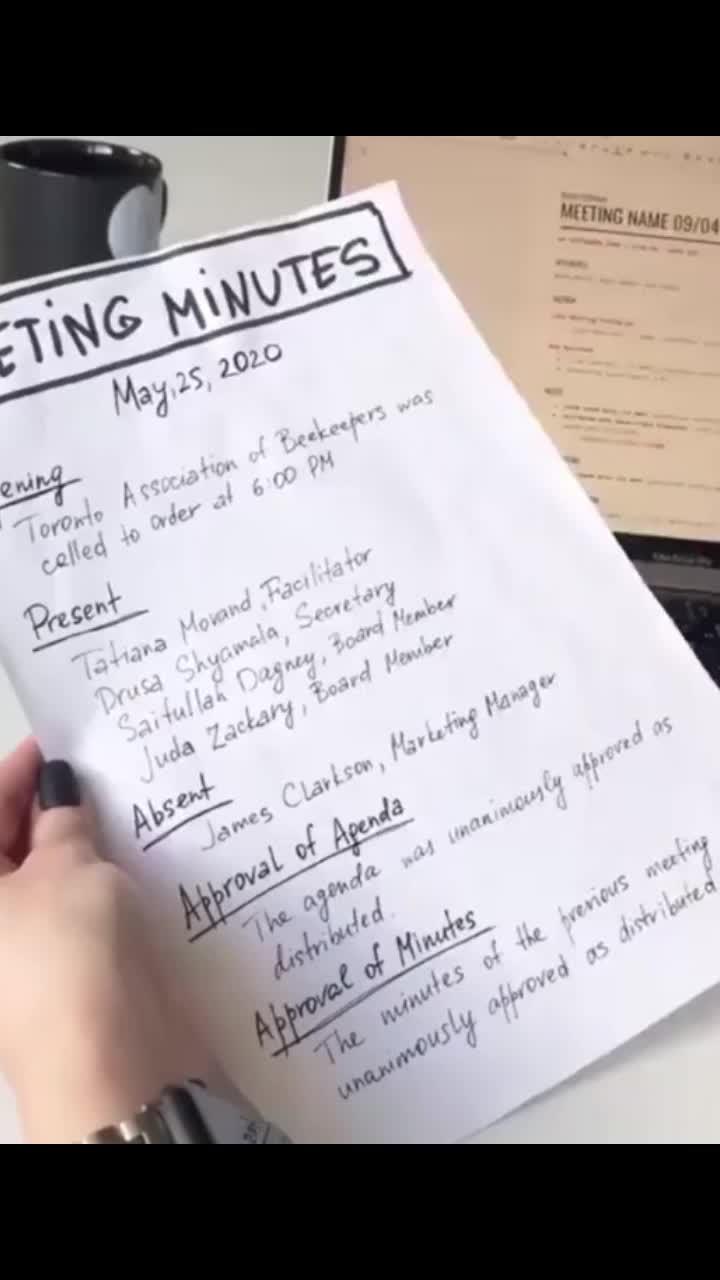 ETING MINUTES
May, 25, 2020
ening
Toronto Association of Beekeepers was
called to order at 6:00 PM
Present
Tatiana Morand, Facilitator
Drusa Shyamala, Secretary
Saifullah Dagney, Board Member
Juda Zackary, Board Member
Absent
James Clarkson, Marketing Manager
Approval of Agenda
The agenda was unanimously approved as
distributed.
Approval of Minutes
The minutes of the previous meeting
unanimously approved as distributed
MEETING NAME 09/04